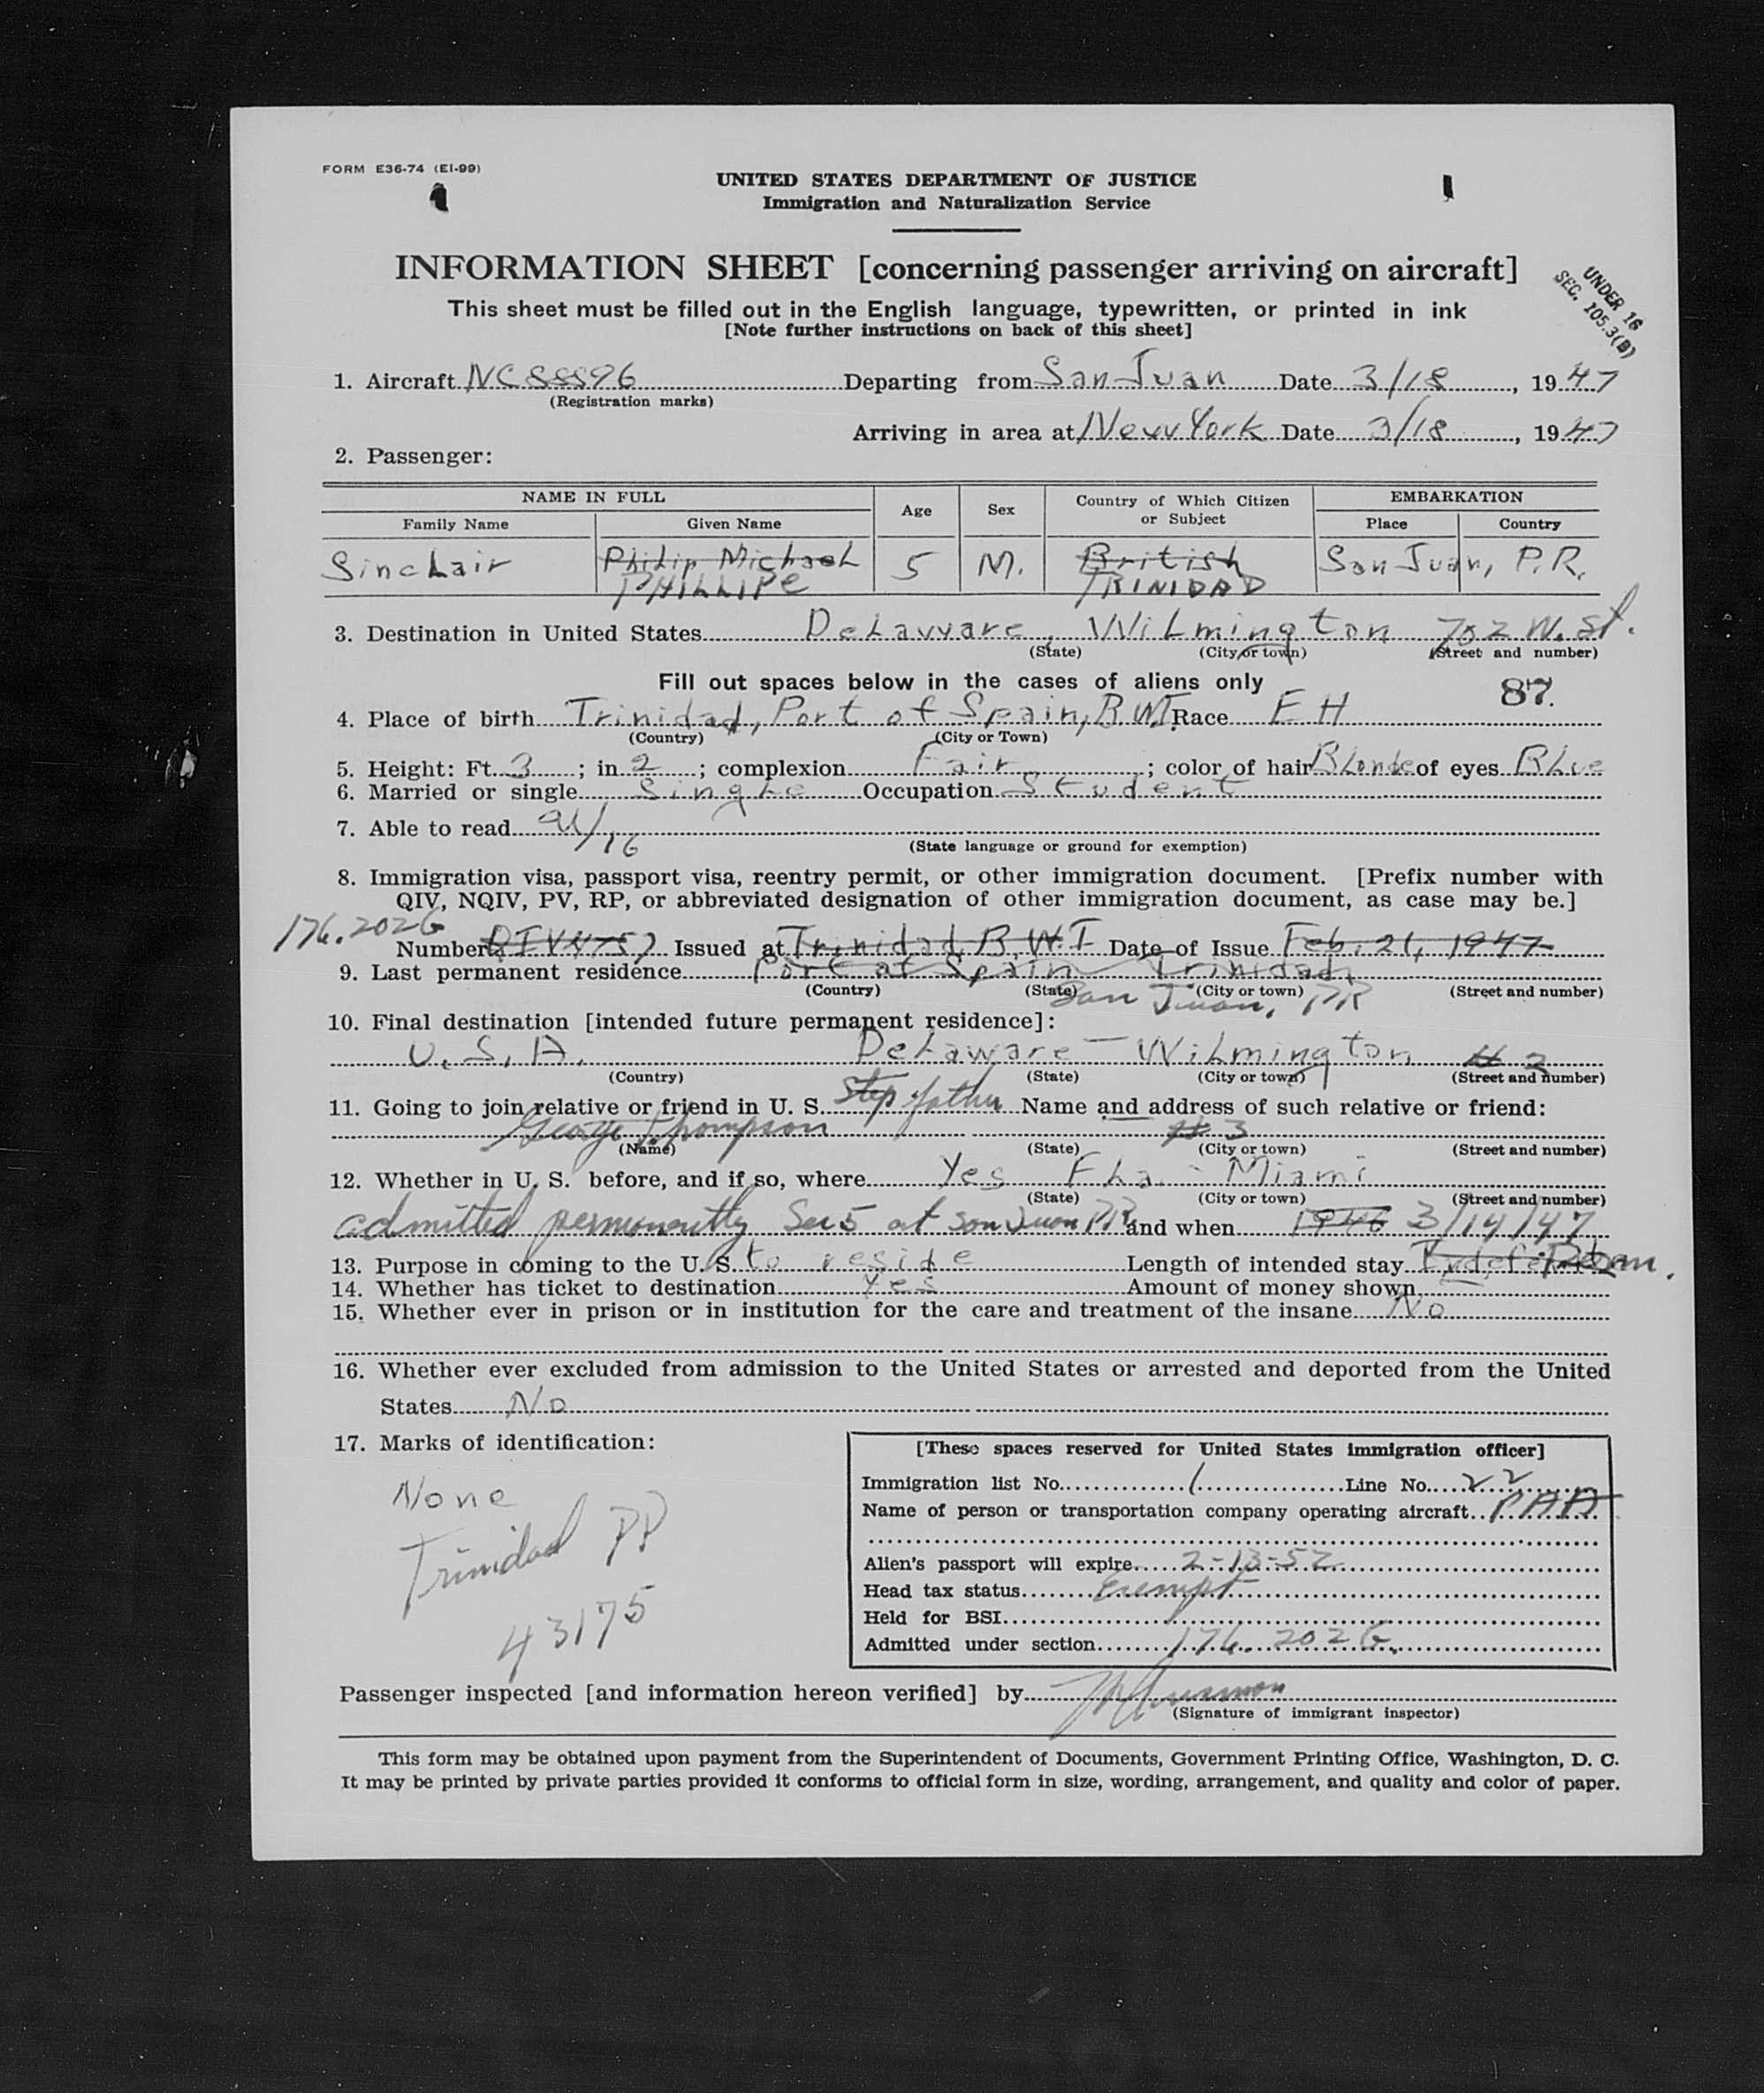 FORM E36-74 (EI-99)
UNITED STATES DEPARTMENT OF JUSTICE
Immigration and Naturalization Service
INFORMATION SHEET [concerning passenger arriving on aircraft]
UNDER 16
SEC. 105.3(B)
This sheet must be filled out in the English language, typewritten, or printed in ink
[Note further instructions on back of this sheet]
1. Aircraft NC88896 Departing from San Juan Date 3/18, 1947
(Registration marks)
Arriving in area at New York Date 3/18, 1947
2. Passenger:
NAME IN FULL Age Sex Country of Which Citizen or Subject EMBARKATION
Family Name Given Name Place Country
Sinclair Philip Michael 5 M. British San Juan, P.R.
PHILLIPE TRINIDAD
3. Destination in United States Delaware, Wilmington 702 W. St.
(State) (City or town) (Street and number)
Fill out spaces below in the cases of aliens only 87.
4. Place of birth Trinidad, Port of Spain, B.W.I. Race E H
(Country) (City or Town)
5. Height: Ft. 3; in 2; complexion Fair; color of hair Blonde of eyes Blue
6. Married or single Single Occupation Student
7. Able to read U/16
(State language or ground for exemption)
8. Immigration visa, passport visa, reentry permit, or other immigration document. [Prefix number with
QIV, NQIV, PV, RP, or abbreviated designation of other immigration document, as case may be.]
176.202G
Number Issued at Trinidad B.W.I Date of Issue Feb. 21, 1947
9. Last permanent residence Port at Spain Trinidad
(Country) (State) (City or town) (Street and number)
San Juan, PR
10. Final destination [intended future permanent residence]:
U.S.A. Delaware - Wilmington # 2
(Country) (State) (City or town) (Street and number)
11. Going to join relative or friend in U. S. Step father Name and address of such relative or friend:
George Thompson # 3
(Name) (State) (City or town) (Street and number)
12. Whether in U. S. before, and if so, where Yes Fla. - Miami
(State) (City or town) (Street and number)
admitted permanently Sec 5 at San Juan PR and when 1946 3/14/47
13. Purpose in coming to the U. S. to reside Length of intended stay Perm.
14. Whether has ticket to destination Yes Amount of money shown —
15. Whether ever in prison or in institution for the care and treatment of the insane No
16. Whether ever excluded from admission to the United States or arrested and deported from the United
States No
17. Marks of identification:
None
Trinidad PP
43175
[These spaces reserved for United States immigration officer]
Immigration list No. 1 Line No. 22
Name of person or transportation company operating aircraft PAA
Alien's passport will expire 2-13-52
Head tax status Exempt
Held for BSI
Admitted under section 176.202G
Passenger inspected [and information hereon verified] by
(Signature of immigrant inspector)
This form may be obtained upon payment from the Superintendent of Documents, Government Printing Office, Washington, D. C.
It may be printed by private parties provided it conforms to official form in size, wording, arrangement, and quality and color of paper.